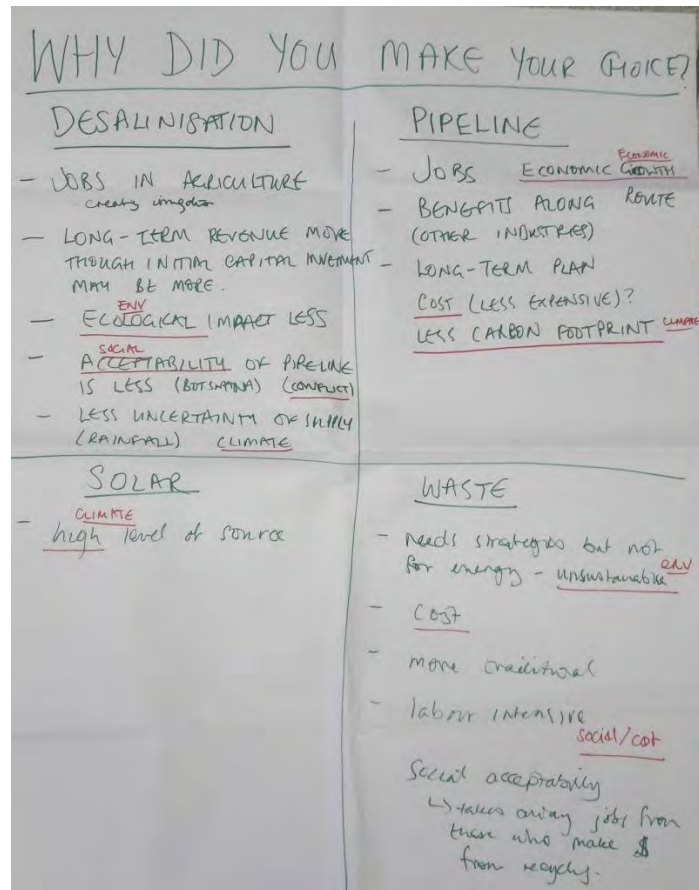 WHY DID YOU MAKE YOUR CHOICE?
DESALINISATION
- JOBS IN AGRICULTURE
creating irrigation
- LONG-TERM REVENUE MORE
THOUGH INITIAL CAPITAL INVESTMENT
MAY BE MORE.
ENV
- ECOLOGICAL IMPACT LESS
SOCIAL
- ACCEPTABILITY OF PIPELINE
IS LESS (BOTSWANA) (CONFLICT)
- LESS UNCERTAINTY OF SUPPLY
(RAINFALL) CLIMATE
PIPELINE
ECONOMIC
- JOBS ECONOMIC GROWTH
- BENEFITS ALONG ROUTE
(OTHER INDUSTRIES)
- LONG-TERM PLAN
COST (LESS EXPENSIVE)?
LESS CARBON FOOTPRINT CLIMATE
SOLAR
CLIMATE
- high level of source
WASTE
- needs strategies but not
for energy - unsustainable env
- COST
- more traditional
- labour intensive
social/cost
Social acceptability
↳ takes away jobs from
those who make $
from recycling.